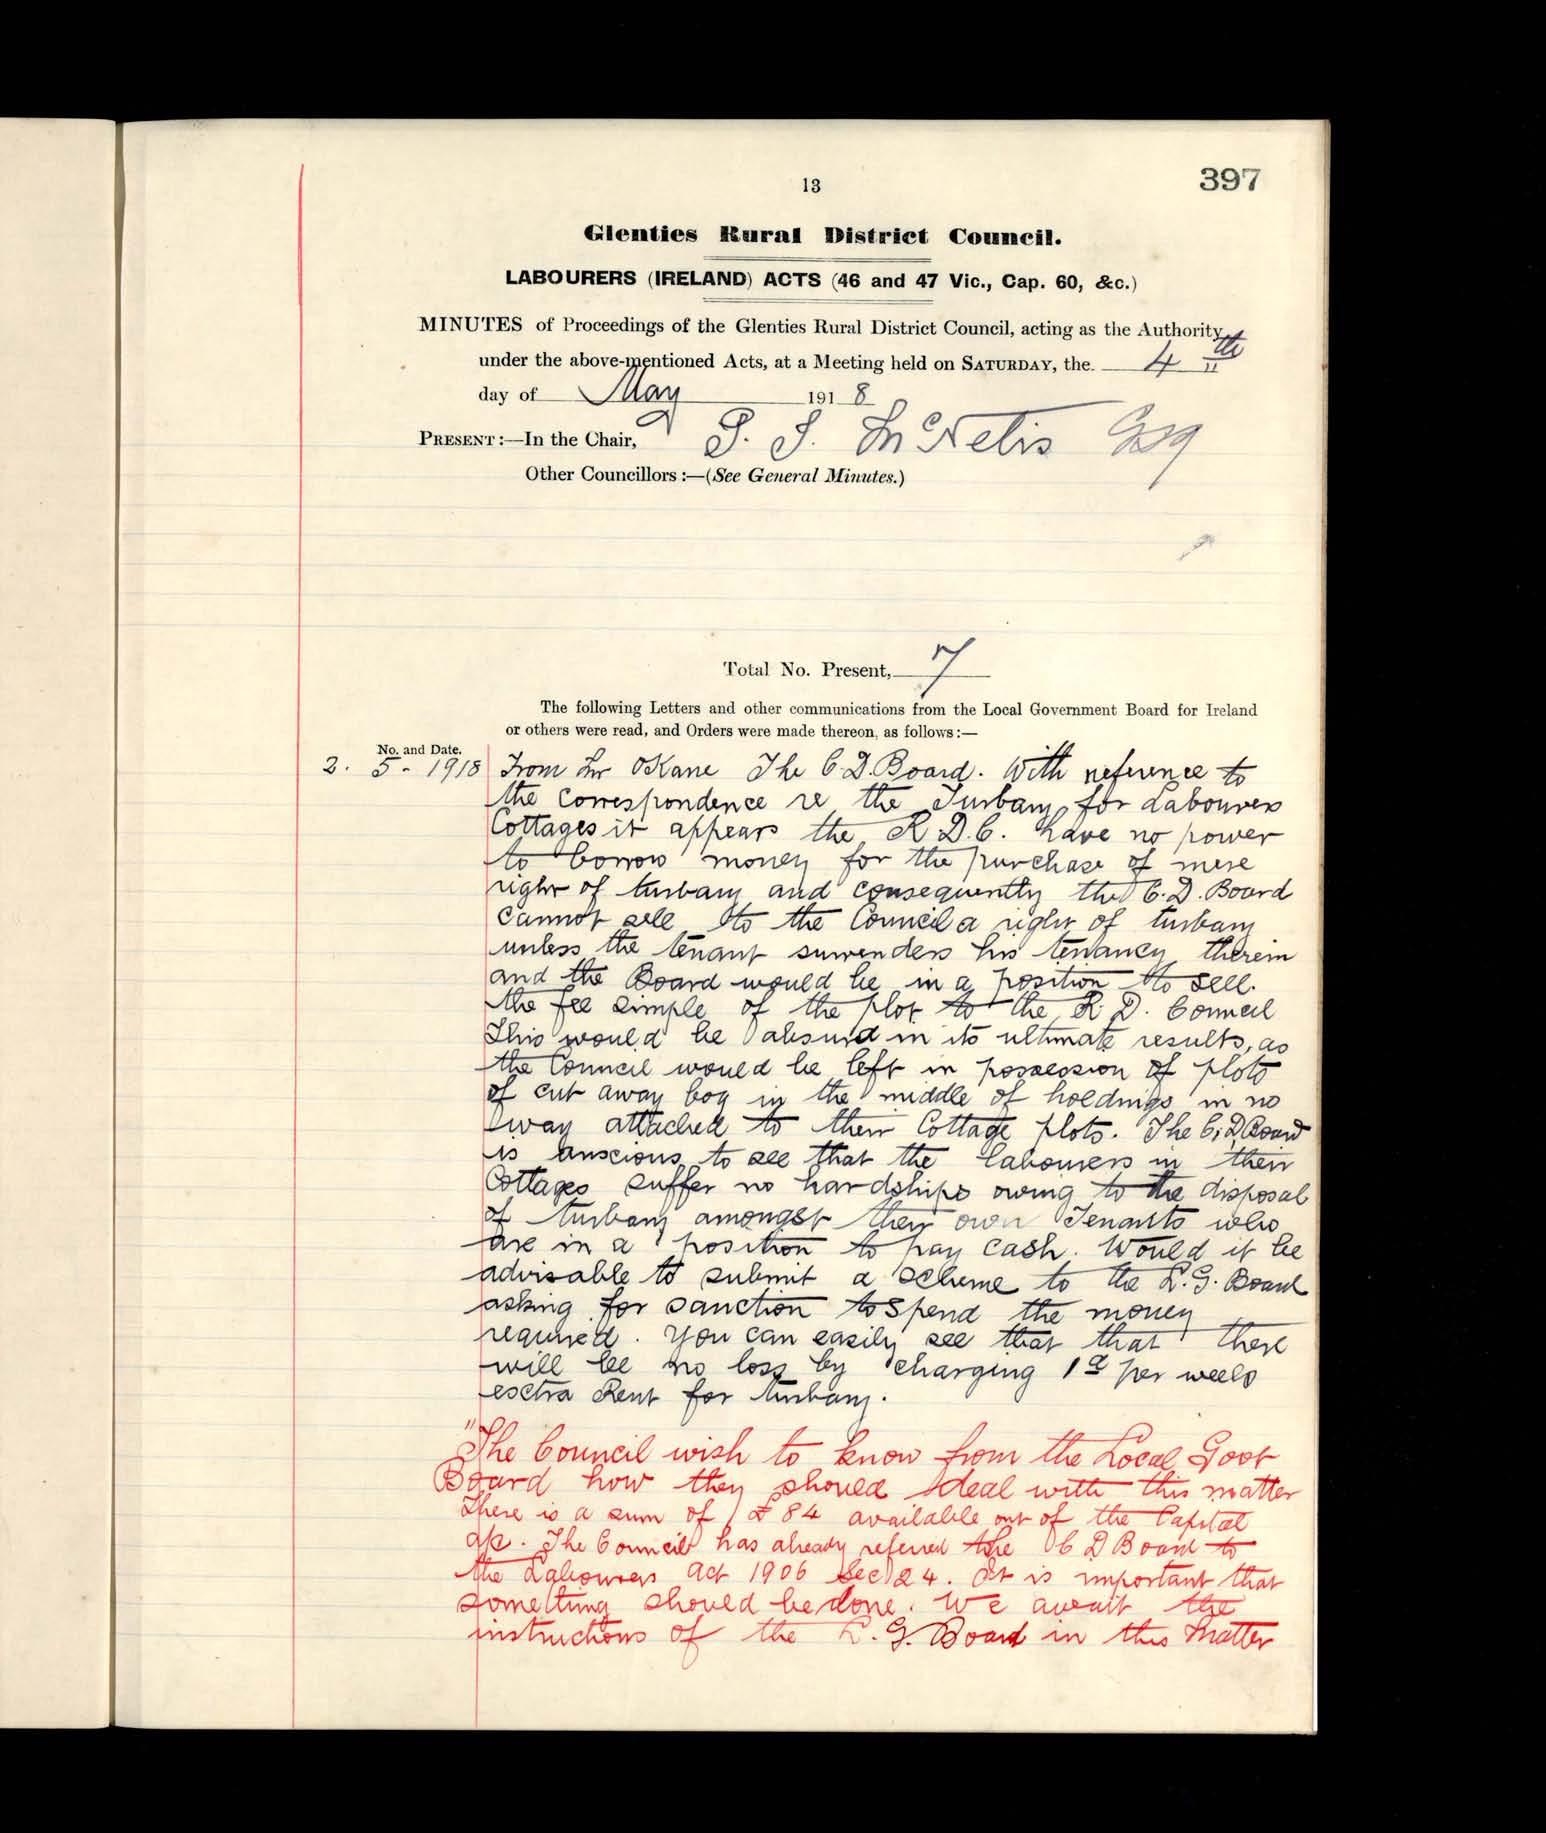 13
397
Glenties Rural District Council.
LABOURERS (IRELAND) ACTS (46 and 47 Vic., Cap. 60, &c.)
MINUTES of Proceedings of the Glenties Rural District Council, acting as the Authority
under the above-mentioned Acts, at a Meeting held on SATURDAY, the 4th
day of May 1918
PRESENT:—In the Chair, P. J. McNelis Esq
Other Councillors:—(See General Minutes.)
Total No. Present, 7
The following Letters and other communications from the Local Government Board for Ireland
or others were read, and Orders were made thereon, as follows:—
No. and Date.
2. 5 - 1918 From Mr OKane The C.D.Board. With reference to
the correspondence re the Turbary for Labourers
Cottages it appears the R.D.C. have no power
to borrow money for the purchase of mere
right of turbary and consequently the C.D. Board
cannot sell to the Council a right of turbary
unless the tenant surrenders his tenancy therein
and the Board would be in a position to sell.
the fee simple of the plot to the R.D. Council
This would be absurd in its ultimate results, as
the Council would be left in possession of plots
of cut away bog in the middle of holdings in no
way attached to their Cottage plots. The C.D.Board
is anscious to see that the labourers in their
Cottages suffer no hardships owing to the disposal
of turbary amongst their own Tenants who
are in a position to pay cash. Would it be
advisable to submit a scheme to the L.G. Board
asking for sanction to spend the money
required. You can easily see that that there
will be no loss by charging 1d per week
esctra Rent for turbary.
"The Council wish to know from the Local Govt
Board how they should deal with this matter
There is a sum of £84 available out of the Capital
a/c. The Council has already referred the C D Board to
the Labourers Act 1906 Sec 24. It is important that
something should be done. We await the
instructions of the L.G. Board in this matter